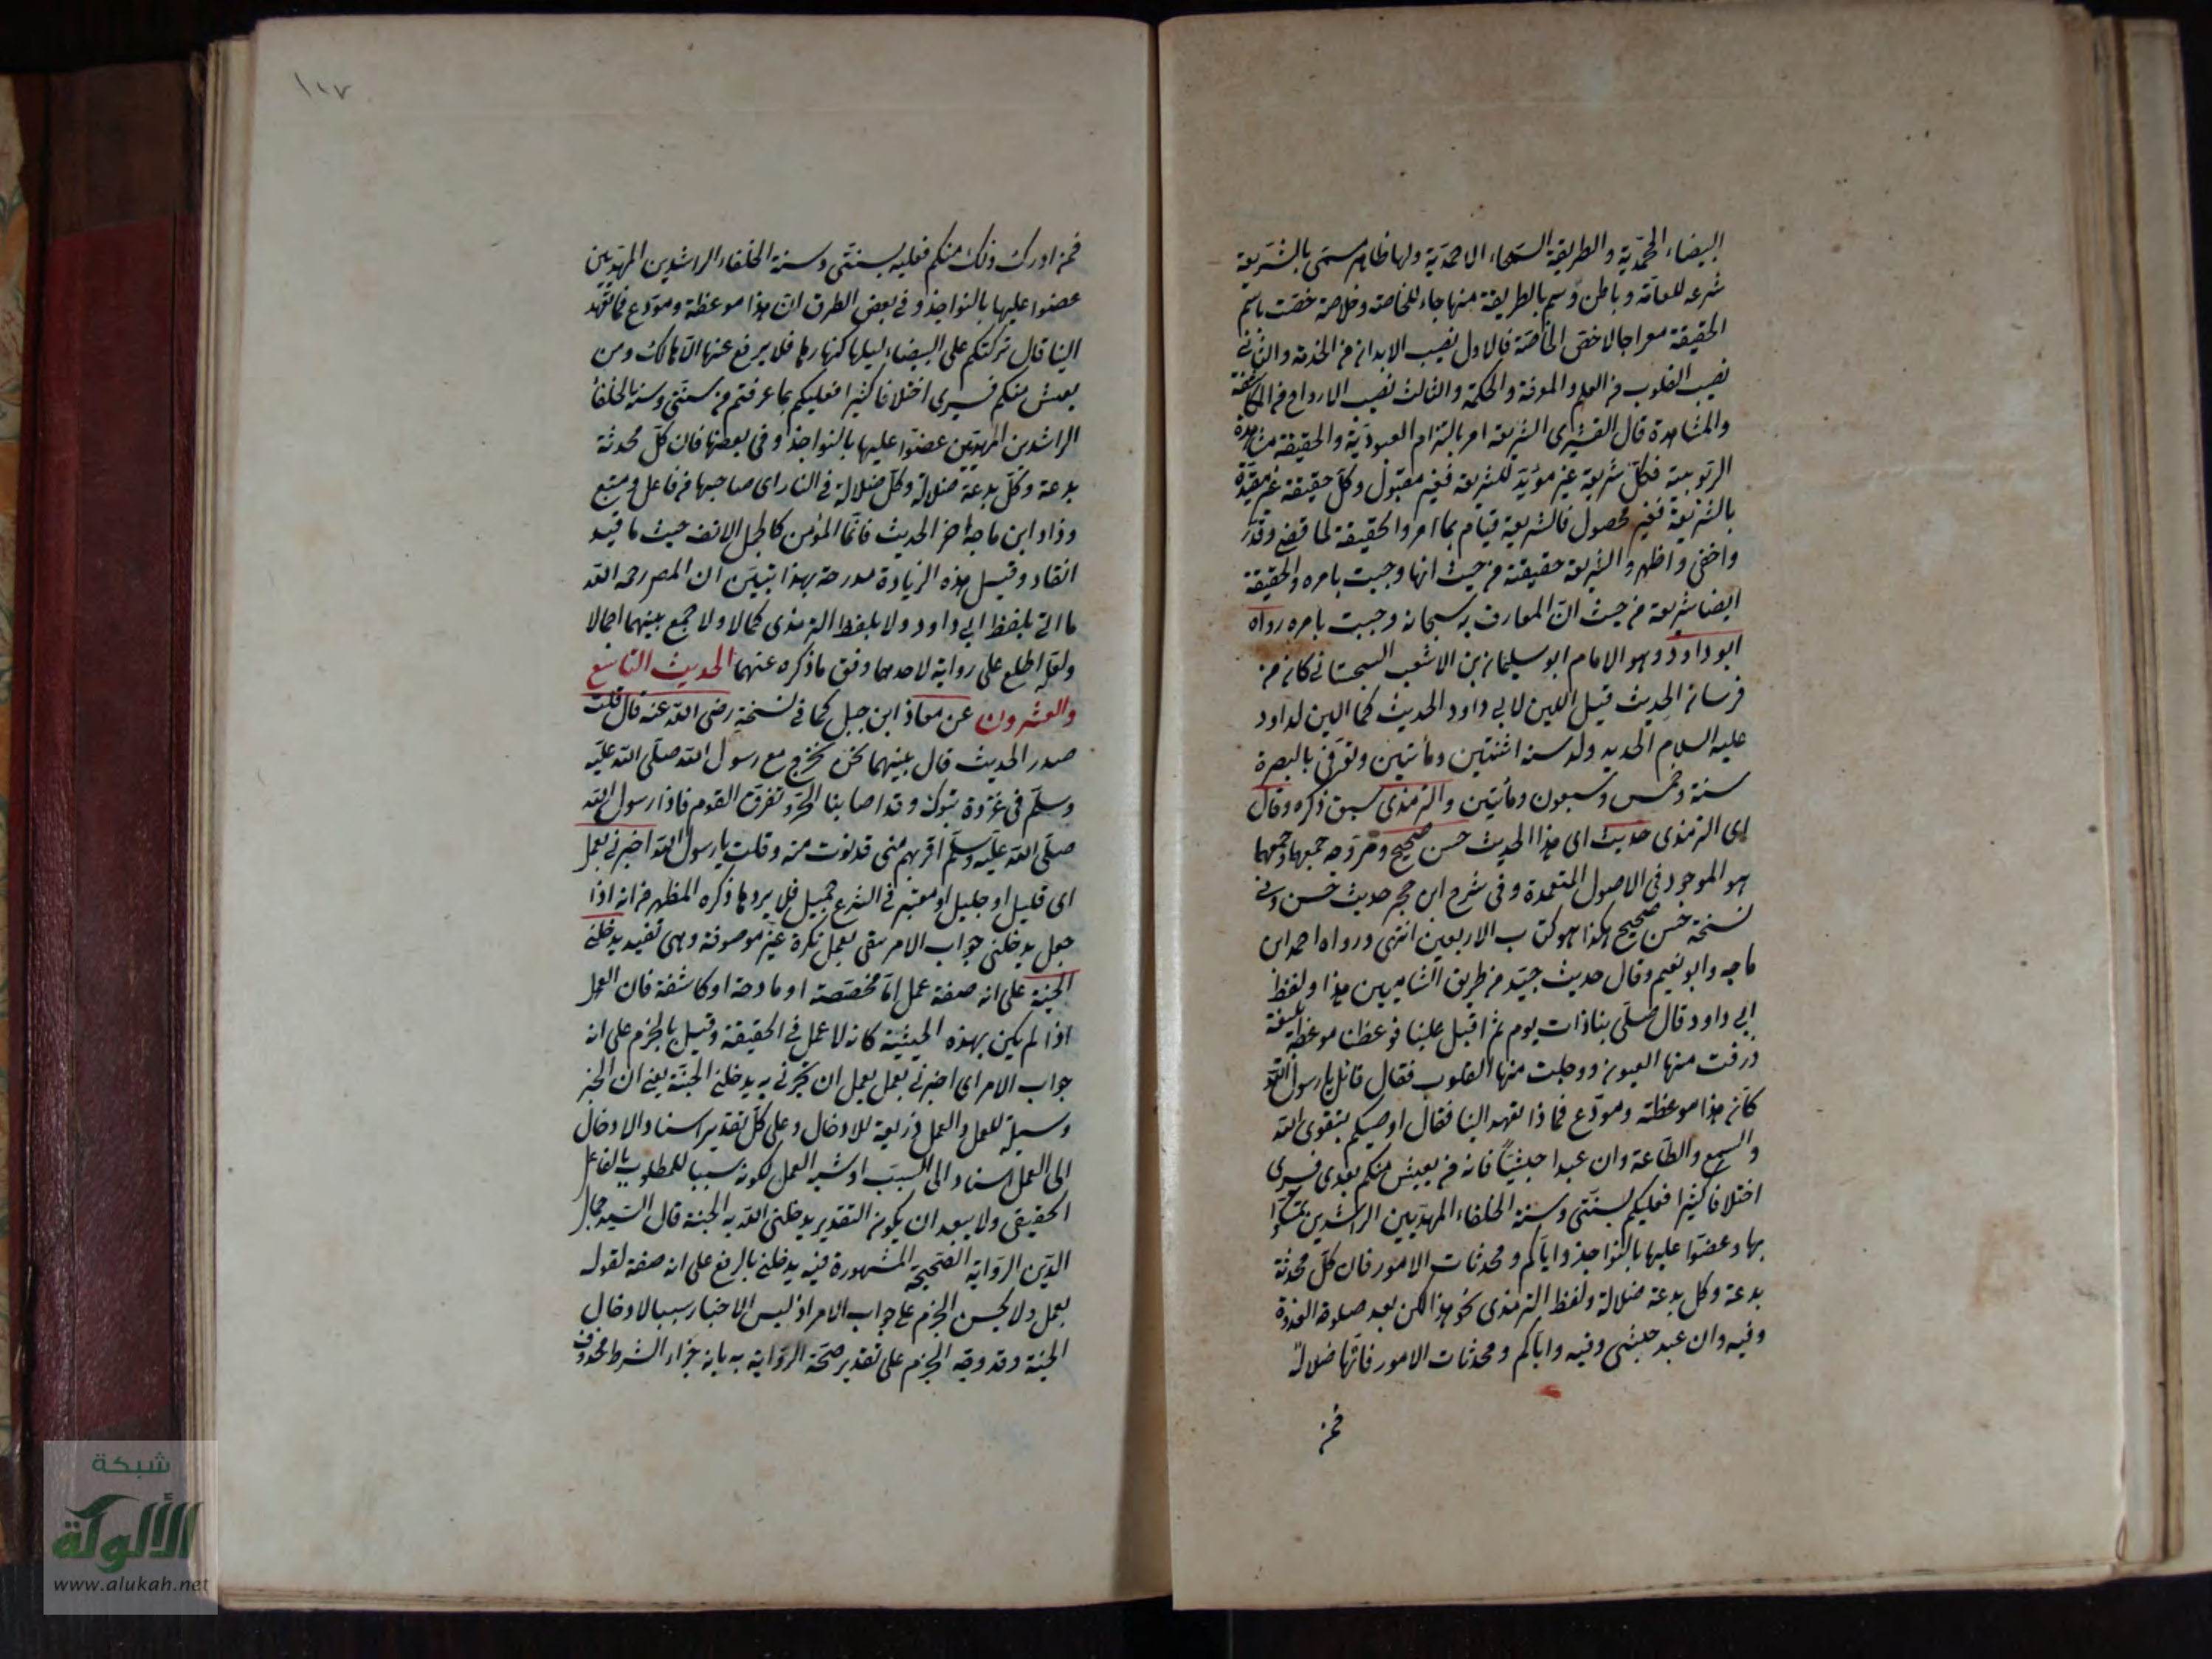 البيضاء المحمّدية والطريقة السمحاء الاحمدية ولها ظاهر مسمّى بالشريعة
شرعه للعامّة وباطن وسم بالطريقة منهاجاء للخاصة وخلاصة خصّت باسم
الحقيقة معراجا لاخص الخاصّة فالاول نصيب الابدان من الخدمة والثاني
نصيب القلوب من العلم والمعرفة والحكمة والثالث نصيب الارواح من المكاشفة
والمشاهدة قال القشيرى الشريعة امر بالتزام العبوديّة والحقيقة مشاهدة
الربوبيته فكلّ شريعة غير مؤيّد للشريعة فغير مقبول وكلّ حقيقة غير مقيّدة
بالشريعة فغير محصول فالشريعة قيام بما امر والحقيقة لما قضى وقدّر
واخفى واظهر والشريعة حقيقة من حيث انها وجبت بامره والحقيقة
ايضا شريعة من حيث انّ المعارف به سبحانه وجبت بامره رواه
ابو داود وهو الامام ابو سليمان بن الاشعب السجستاني كان من
فرسان الحديث قيل اللين لابي داود الحديث كما الين لداود
عليه السلام الحديد ولد سنة اثنتين ومأتين وتوفى بالبصرة
سنة وخمس وسبعون ومأتين والترمذى سبق ذكره وقال
اى الترمذى حديث اى هذا الحديث حسن صحيح ومر وجه جمعهما وجمعهما
هو الموجود فى الاصول المتعمدة وفى شرح ابن حجر حديث حسن وفي
نسخة حسن صحيح هكذا هو كتاب الاربعين انتهى ورواه احمد ابن
ماجه وابو نعيم وقال حديث جيّد من طريق الشاميين هذا ولفظ
ابى داود قال صلّى بنا ذات يوم ثم اقبل علينا فوعظنا موعظة بليغة
ذرفت منها العيون ووجلت منها القلوب فقال قائل يا رسول الله
كأن هذا موعظة ومودّع فماذا تعهد الينا فقال اوصيكم بتقوى الله
والسمع والطاعة وان عبدا حبشيّاً فانه من يعيش منكم بعدى فسيرى
اختلافا كثيرا فعليكم بسنتى وسنة الخلفاء المهديين الراشدين تمسّكوا
بها وعضّوا عليها بالنواجذ واياكم ومحدثات الامور فان كلّ محدثة
بدعة وكل بدعة ضلالة ولفظ الترمذى نحو هذا لكن بعد صلوة الغدوة
وفيه وان عبد حبشى وفيه واياكم ومحدثات الامور فانّها ضلالة
فمن
١١٧
فمن ادرك ذلك منكم فعليه بسنتى وسنة الخلفاء الراشدين المهديين
عضوا عليها بالنواجذ وفى بعض الطرق انّ هذا موعظة ومودّع فما تعهد
الينا قال تركتكم على البيضاء ليلها كنهارها فلا يرفع عنها الّا هالك ومن
يعش منكم فسيرى اختلافا كثيرا فعليكم بما عرفتم من سنتى وسنة الخلفأ
الراشدين المهديّين عضوا عليها بالنواجذ وفى بعضها فان كلّ محدثة
بدعة وكلّ بدعة ضلالة وكلّ ضلالة فى النار اى صاحبها من فاعل ومتبع
وزاد ابن ماجه اخر الحديث فانّما المؤمن كالجمل الانف حيث ما قيد
انقاد وقيل هذه الزيادة مدرجة بهذا تبيّن ان المص رحمه الله
ما اتى بلفظ ابى داود ولا بلفظ الترمذى كمالا ولا جمع بينهما اجمالا
ولعلّه اطلع على رواية لاحدهما وفق ما ذكره عنهما الحديث التاسع
والعشرون عن معاذ ابن جبل كما في نسخة رضى الله عنه قال قلت
صدر الحديث قال بينهما نحن نخرج مع رسول الله صلّى الله عليه
وسلّم فى غزوة تبوك وقد اصابنا الحرّ وتفرق القوم فاذا رسول الله
صلّى الله عليه وسلّم اقربهم منى فدنوت منه وقلت يا رسول الله اخبرني بعمل
اى قليل او جليل او معتبر فى الشرع جميل فلا يرد ما ذكره المظهر من انه اذا
جعل يدخلني جواب الامر يبقى بعمل نكرة غير موصوفة وهى تفيد يدخلنى
الجنية على انه صفة عمل امّا مخصّصة او مادحة او كاشفة فان العمل
اذا لم يكن بهذه الحيثية كانه لا عمل في الحقيقة وقيل بالجزم على انه
جواب الامر اى اخبرنى بعمل يعمل ان تخبرنى به يدخلنى الجنّة يعني ان الخبر
وسيلة للعمل والعمل ذريعة للادخال وعلى كلّ تقدير اسناد الادخال
الى العمل اسناد الى السبب او شبه العمل لكونه سببا للمطلوب بالفاعل
الحقيقى ولا يبعد ان يكون التقدير يدخلنى الله به الجنة قال السّيد جمال
الدّين الرّواية الصّحيحة المشهورة فيه يدخلنى بالرفع على انه صفة لقوله
بعمل ولا يحسن الجزم على جواب الامر اذ ليس الاخبار سببا لادخال
الجنة وقد وجّه الجزم على تقدير صحّة الرّواية به بانه جزاء الشرط محذوف
شبكة
الألوكة
www.alukah.net